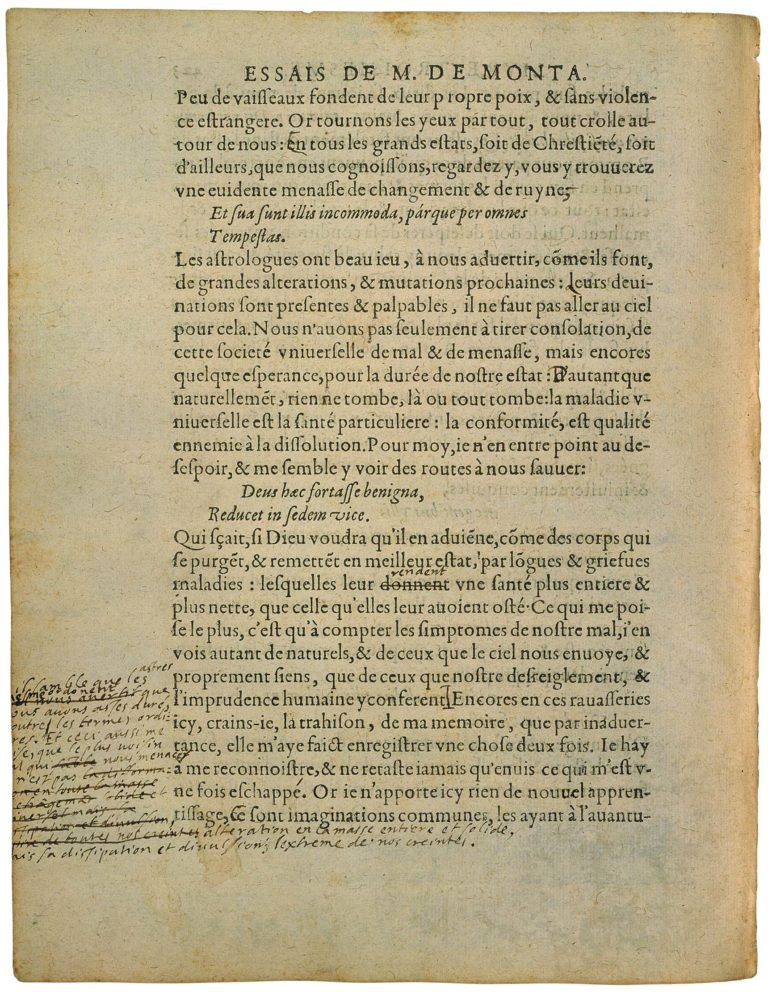 ESSAIS DE M. DE MONTA.
Peu de vaiſſeaux fondent de leur p ropre poix, & ſans violen-
ce eſtrangere. Or tournons les yeux par tout, tout crolle au-
tour de nous: En tous les grands eſtats, ſoit de Chreſtiẽté, ſoit
d'ailleurs, que nous cognoiſſons, regardez y, vous y trouuerez
vne euidente menaſſe de changement & de ruyne,
Et ſua ſunt illis incommoda, párque per omnes
Tempeſtas.
Les aſtrologues ont beau ieu, à nous aduertir, cõme ils font,
de grandes alterations, & mutations prochaines: Leurs deui-
nations ſont preſentes & palpables, il ne faut pas aller au ciel
pour cela. Nous n'auons pas ſeulement à tirer conſolation, de
cette ſocieté vniuerſelle de mal & de menaſſe, mais encores
quelque eſperance, pour la durée de noſtre eſtat: D'autant que
naturellemẽt, rien ne tombe, là ou tout tombe: la maladie v-
niuerſelle eſt la ſanté particuliere: la conformité, eſt qualité
ennemie à la diſſolution. Pour moy, ie n'en entre point au de-
ſeſpoir, & me ſemble y voir des routes à nous ſauuer:
Deus hæc fortaſſe benigna,
Reducet in ſedem vice.
Qui ſçait, ſi Dieu voudra qu'il en aduiẽne, cõme des corps qui
ſe purgẽt, & remettẽt en meilleur eſtat, par lõgues & griefues
rendent
maladies: leſquelles leur donnent vne ſanté plus entiere &
plus nette, que celle qu'elles leur auoient oſté. Ce qui me poi-
ſe le plus, c'eſt qu'à compter les ſimptomes de noſtre mal, i'en
vois autant de naturels, & de ceux que le ciel nous enuoye, &
proprement ſiens, que de ceux que noſtre deſreiglement, &
l'imprudence humaine y conferent. Encores en ces rauaſſeries
icy, crains-ie, la trahiſon, de ma memoire, que par inaduer-
tance, elle m'aye faict enregiſtrer vne choſe deux fois. Ie hay
à me reconnoiſtre, & ne retaſte iamais qu'enuis ce qui m'eſt v-
ne fois eſchappé. Or ie n'apporte icy rien de nouuel appren-
tiſſage, Ce ſont imaginations communes, les ayant à l'auantu-
semble que les astres
ous auons asses duré,
outre les termes ordi
res. Et ceci aussi me
se, que le plus voisin
l qui nous menace
n'est pas
alteration en la masse entiere et solide,
is sa dissipation et diuulsion, l'extreme de nos creintes.